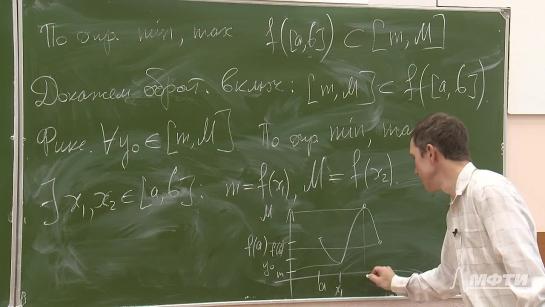 По опр. min, max f([a,b]) ⊂ [m,M]
Докажем обрат. включ: [m,M] ⊂ f([a,b]).
Фикс. ∀y₀ ∈ [m,M]. По опр. min, max
∃ x₁, x₂ ∈ [a,b]: m = f(x₁), M = f(x₂).
M
f(a)
y₀
m
a x₁
МФТИ